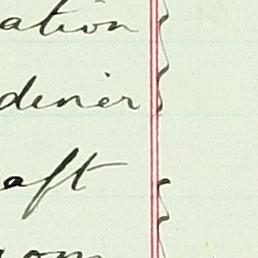 ation
diner
aft